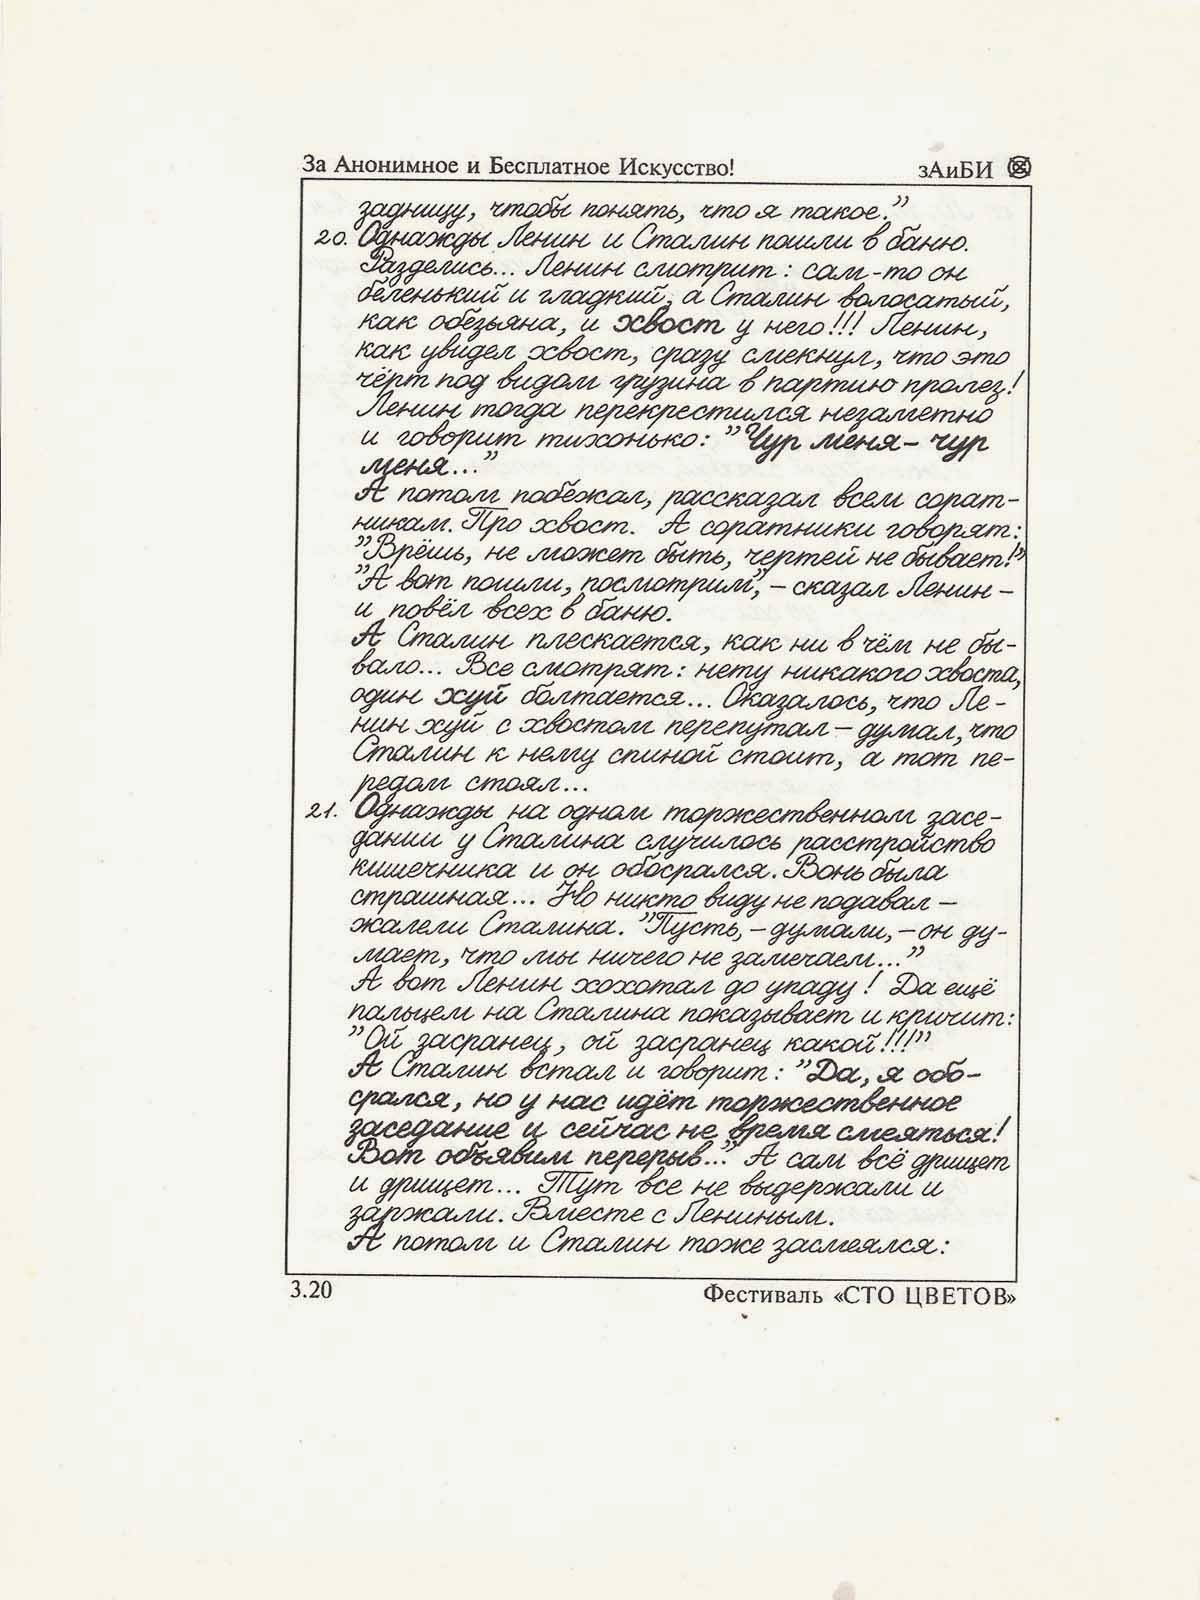 За Анонимное и Бесплатное Искусство! зАиБИ
задницу, чтобы понять, что я такое."
20. Однажды Ленин и Сталин пошли в баню.
Разделись... Ленин смотрит: сам-то он
беленький и гладкий, а Сталин волосатый,
как обезьяна, и хвост у него!!! Ленин,
как увидел хвост, сразу смекнул, что это
чёрт под видом грузина в партию пролез!
Ленин тогда перекрестился незаметно
и говорит тихонько: "Чур меня – чур
меня..."
А потом побежал, рассказал всем сорат-
никам. Про хвост. А соратники говорят:
"Врёшь, не может быть, чертей не бывает!"
"А вот пошли, посмотрим", – сказал Ленин –
и повёл всех в баню.
А Сталин плескается, как ни в чём не бы-
вало... Все смотрят: нету никакого хвоста,
один хуй болтается... Оказалось, что Ле-
нин хуй с хвостом перепутал – думал, что
Сталин к нему спиной стоит, а тот пе-
редом стоял...
21. Однажды на одном торжественном засе-
дании у Сталина случилось расстройство
кишечника и он обосрался. Вонь была
страшная... Но никто виду не подавал –
жалели Сталина. "Пусть, – думали, – он ду-
мает, что мы ничего не замечаем..."
А вот Ленин хохотал до упаду! Да ещё
пальцем на Сталина показывает и кричит:
"Ой засранец, ой засранец какой!!!"
А Сталин встал и говорит: "Да, я обо-
срался, но у нас идёт торжественное
заседание и сейчас не время смеяться!
Вот объявим перерыв..." А сам всё дрищет
и дрищет... Тут все не выдержали и
заржали. Вместе с Лениным.
А потом и Сталин тоже засмеялся:
3.20 Фестиваль «СТО ЦВЕТОВ»